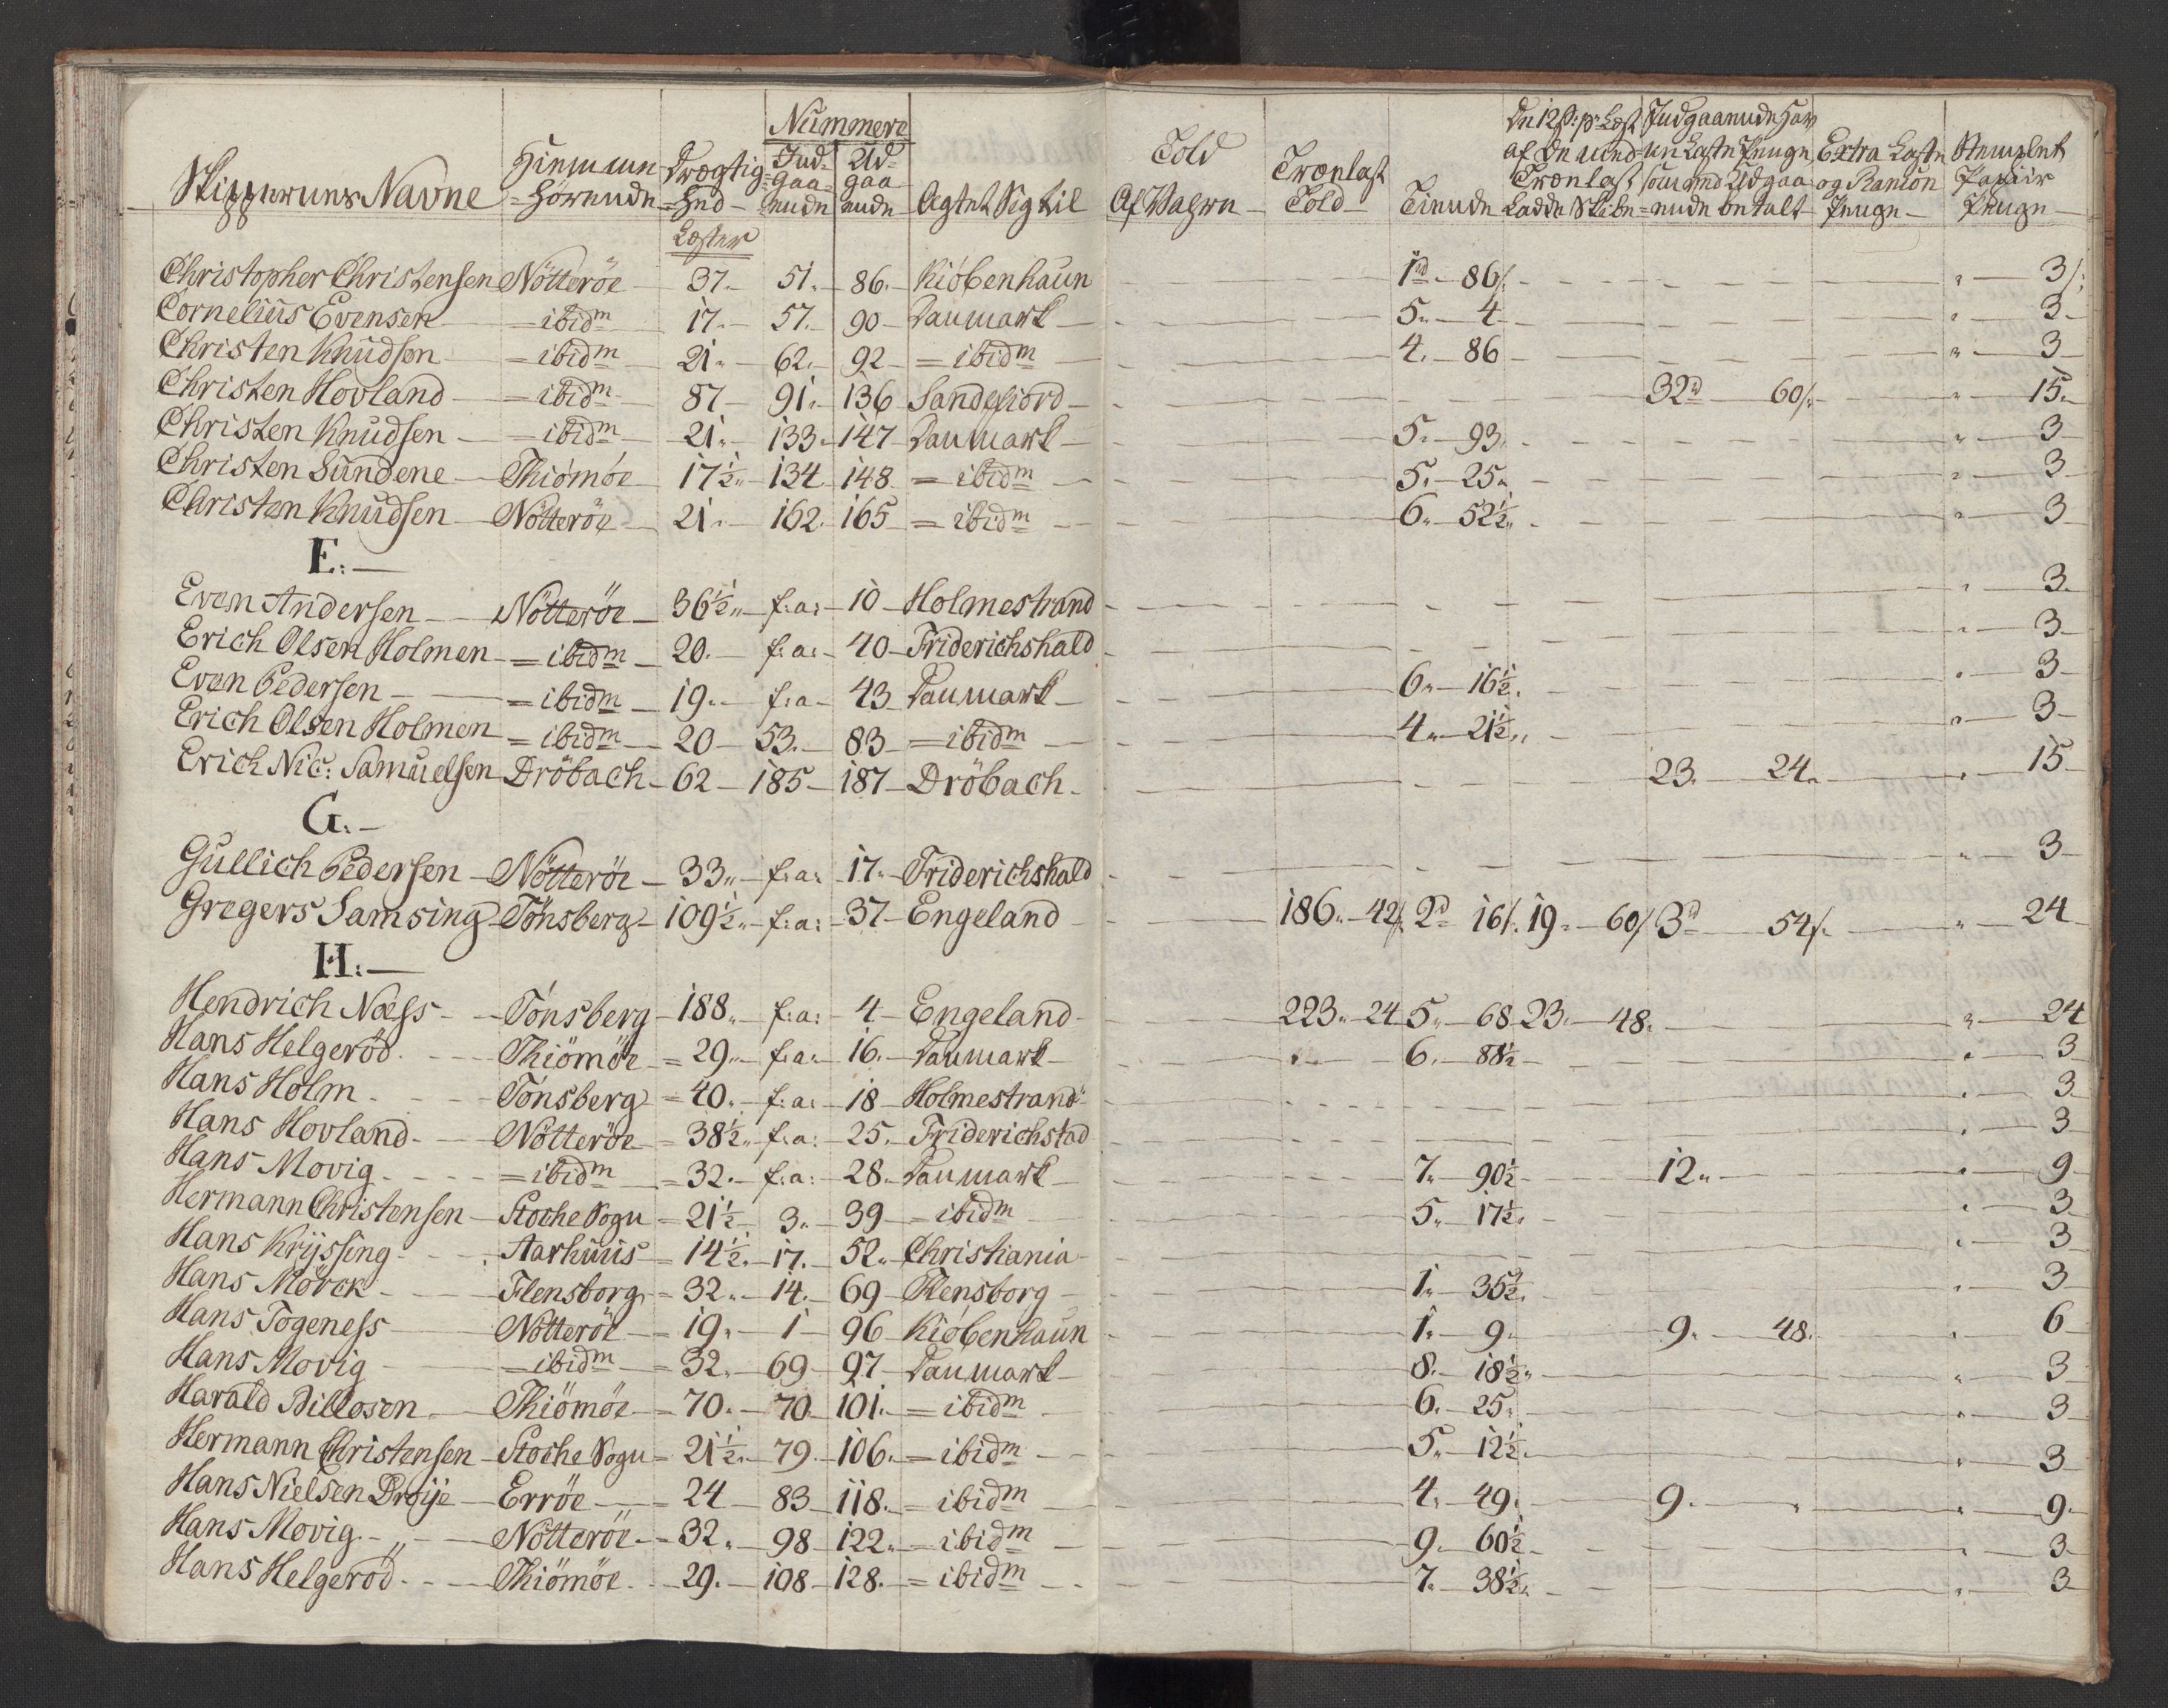 Skippernes Navne | Hiemme=hørende | Drægtig=hed Læster | Nummere Ind=gaa=ende | Ud=gaa=ende | Agtet Sig til | Told Af Vahren | Trænlast Told | Tiende | De 12 s: pr Læst af de med Trænlast Ladde Skibe | Indgaaende har en Laste Penge som ved Udgaa=ende betalt | Extra Laste og Rancon Penge | Stemplet Papiir Penge
Christopher Christensen Nötteröe 37. 51. 86. Kiöbenhaun 1rd 86s. " 3s:
Cornelius Evensen =ibidm 17. 57. 90 Danmark 5. 4 " 3
Christen Knudsen =ibidm 21. 62. 92 =ibidm 4. 86 " 3
Christen Hovland =ibidm 87 91. 136 Sandefiord 32rd 60s. " 15.
Christen Knudsen =ibidm 21. 133. 147 Danmark 5. 93. " 3
Christen Sundene Thiömöe 17½ 134 148 =ibidm 5. 25. " 3
Christen Knudsen Nötteröe 21. 162. 165 =ibidm 6. 52½ " 3
E:
Even Andersen Nötteröe 36½ f:a: 10 Holmestrand " 3.
Erich Olsen Holmen =ibidm 20. f:a: 40 Friderichshald " 3
Even Pedersen =ibidm 19. f:a 43 Danmark 6. 16½. " 3
Erich Olsen Holmen =ibidm 20 53. 83 =ibidm 4. 21½ " 3
Erich Nic: Samuelsen Dröbach 62 185 187 Dröbach. 23. 24. " 15
G:
Gullich Pedersen Nötteröe 33 f:a: 17. Friderichshald " 3
Gregers Samsing Tönsberg 109½ f:a: 37 Engeland 186. 42s. 2rd 16s. 19. 60s 3rd 54s. " 24
H:
Hendrich Næss Tönsberg 188. f:a: 4 Engeland 223. 24 5. 68 23. 48. " 24
Hans Helgeröd. Thiömöe = 29. f:a: 16. Danmark 6. 88½ " 3
Hans Holm Tönsberg = 40. f:a: 18 Holmestrand " 3.
Hans Hovland Nötteröe 38½ f:a: 25. Friderichstad " 3
Hans Movig =ibidm = 32. f:a: 28. Danmark 7. 90½ 12. " 9
Hermann Christensen Stoche Sogn = 21½ 3. 39 =ibidm 5. 17½. " 3
Hans Krijssing Aarhuus 14½. 17. 52. Christiania " 3
Hans Mörck Flensborg = 32. 14. 69 Flensborg 1. 35½. " 3
Hans Togeness Nötteröe = 19. 1 96 Kiöbenhaun 1. 9. 9. 48. " 6
Hans Movig =ibidm = 32. 69 97 Danmark 8. 18½. " 3
Harald Billosen Thiömöe = 70. 70. 101. =ibidm 6. 25. " 3
Hermann Christensen Stoche Sogn = 21½. 79. 106. =ibidm 5. 12½. " 3
Hans Nielsen Droije Erröe = 24 83 118. =ibidm 4. 49. 9. " " 9.
Hans Movig Nötteröe = 32. 98 122. =ibidm 9. 60½ " 3
Hans Helgeröd Thiömöe 29. 108 128. =ibidm 7. 38½. " 3